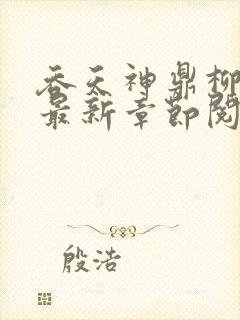 吞天神鼎柳
最新章节阅
殷浩